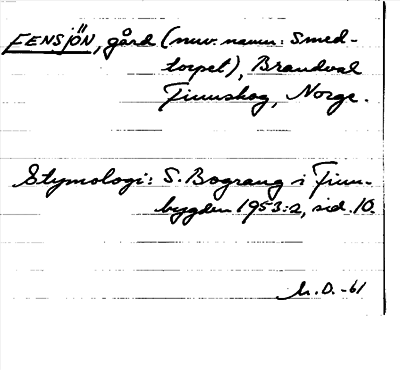 EENSJÖN, gård (nuv. namn: Smed-
torpet), Brandval
Finnskog, Norge.
Etymologi: S. Bograng i Finn-
bygden 1953:2, sid. 10.
h.D. -61